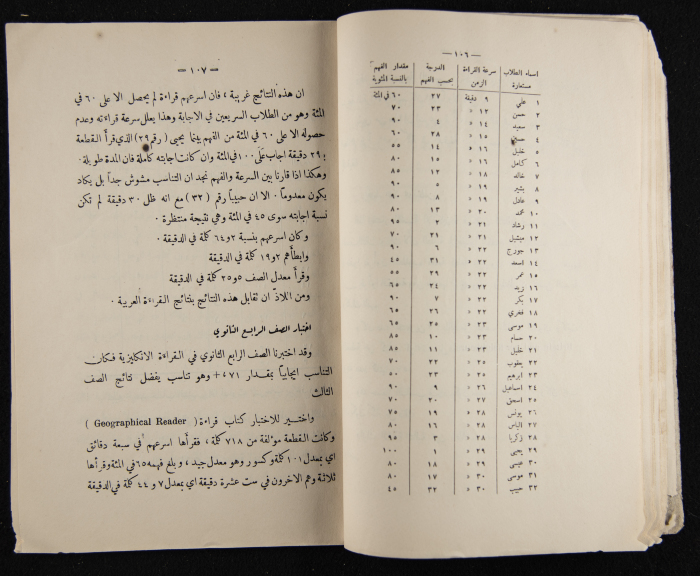 — ١٠٦ —
اسماء الطلاب سرعة القراءة الدرجة مقدار الفهم
مستعارة الزمن بحسب الفهم بالنسبة المئوية
١ علي ٩ دقيقة ٢٧ ٦٠ في المئة
٢ حسن ١٢ » ٢٣ ٧٠
٣ سعيد ١٤ » ٤ ٩٠
٤ حسين ١٥ » ٢٨ ٦٠
٥ خليل ١٦ » ١٤ ٥٥
٦ كامل ١٦ » ١٥ ٨٠
٧ خالد ١٨ » ١٢ ٨٥
٨ بشير ١٩ » ٥ ٩٠
٩ عادل ١٩ » ٨ ٩٠
١٠ محمد ٢٠ » ١٣ ٨٠
١١ رشاد ٢١ » ٢ ٩٥
١٢ ميشيل ٢١ » ٢١ ٧٠
١٣ جورج ٢٢ » ٦ ٩٠
١٤ اسعد ٢٢ » ٣١ ٤٥
١٥ عمر ٢٢ » ٢٩ ٥٥
١٦ زيد ٢٢ » ٢٤ ٦٥
١٧ بكر ٢٢ » ٧ ٩٠
١٨ فخري ٢٢ » ٢٦ ٦٥
١٩ موسى ٢٣ » ٢٥ ٦٥
٢٠ حسام ٢٣ » ١٠ ٨٥
٢١ خليل ٢٣ » ١١ ٨٥
٢٢ يعقوب ٢٥ » ٢٢ ٧٠
٢٣ ابرهيم ٢٥ » ٢٣ ٥٠
٢٤ اسماعيل ٢٦ » ٩ ٩٠
٢٥ اسحق ٢٧ » ٢٠ ٧٠
٢٦ يونس ٢٨ » ١٩ ٧٥
٢٧ الياس ٢٨ » ١٦ ٨٠
٢٨ زكريا ٢٨ » ٣ ٩٥
٢٩ يحيى ٢٩ » ١ ١٠٠
٣٠ عيسى ٢٩ » ١٨ ٨٠
٣١ موسى ٣٠ » ١٧ ٨٠
٣٢ حبيب ٣٠ » ٣٢ ٤٥
— ١٠٧ —
ان هذه النتائج غريبة ، فان اسرعهم قراءة لم يحصل الا على ٦٠ في
المئة وهو من الطلاب السريعين في الاجابة وهذا يعلل سرعة قراءته وعدم
حصوله الا على ٦٠ في المئة من الفهم بينما يحيى (رقم ٢٩) الذي قرأ القطعة
بـ ٢٩ دقيقة اجاب على ١٠٠ في المئة وان كانت اجابته كاملة فان المدة طويلة .
وهكذا اذا قارنا بين السرعة والفهم نجد ان التناسب مشوش جداً بل يكاد
يكون معدوماً . الا ان حبيباً رقم ( ٣٢ ) مع انه ظل ٣٠ دقيقة لم تكن
نسبة اجابته سوى ٤٥ في المئة وهي نتيجة منتظرة .
وكان اسرعهم بنسبة ٢و٦٤ كلمة في الدقيقة .
وابطأهم ٢و١٩ كلمة في الدقيقة
وقرأ معدل الصف ٥و٢٥ كلمة في الدقيقة
ومن اللاذّ ان تقابل هذه النتائج بنتائج القراءة العربية .
اختبار الصف الرابع الثانوي
وقد اختبرنا الصف الرابع الثانوي في القراءة الانكليزية فكان
التناسب ايجابياً بمقدار ٤٧١+ وهو تناسب يفضل نتائج الصف
الثالث
واختير للاختبار كتاب قراءة ( Geographical Reader )
وكانت القطعة مؤلفة من ٧١٨ كلمة ، فقرأها اسرعهم في سبعة دقائق
اي بمعدل ١٠١ كلمة وكسور وهو معدل جيد ، و بلغ فهمه ٦٥ في المئة وقرأها
ثلاثة وهم الاخرون في ست عشرة دقيقة اي بمعدل ٧ و ٤٤ كلمة في الدقيقة